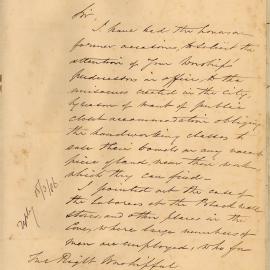 Sir,
I have had the honor on
former occasions, to solicit the
attention of Your Worship's
predecessors in office, to the
nuisances created in the City
by reason of want of public
closet accommodation obliging
the hardworking classes to
ease their bowels on any vacant
piece of land, near their work
which they can find.
I pointed out the case of
the laborers at the Blackwall
stores, and other places in the
where large numbers of
men are employed, who for
The Right Worshipful
Reply